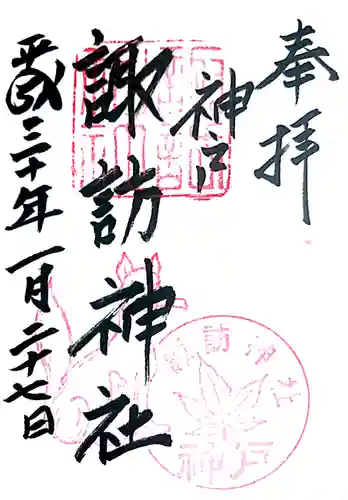 奉拝
神戸
諏訪神社
平成三十年一月二十七日
諏訪神社
神戸